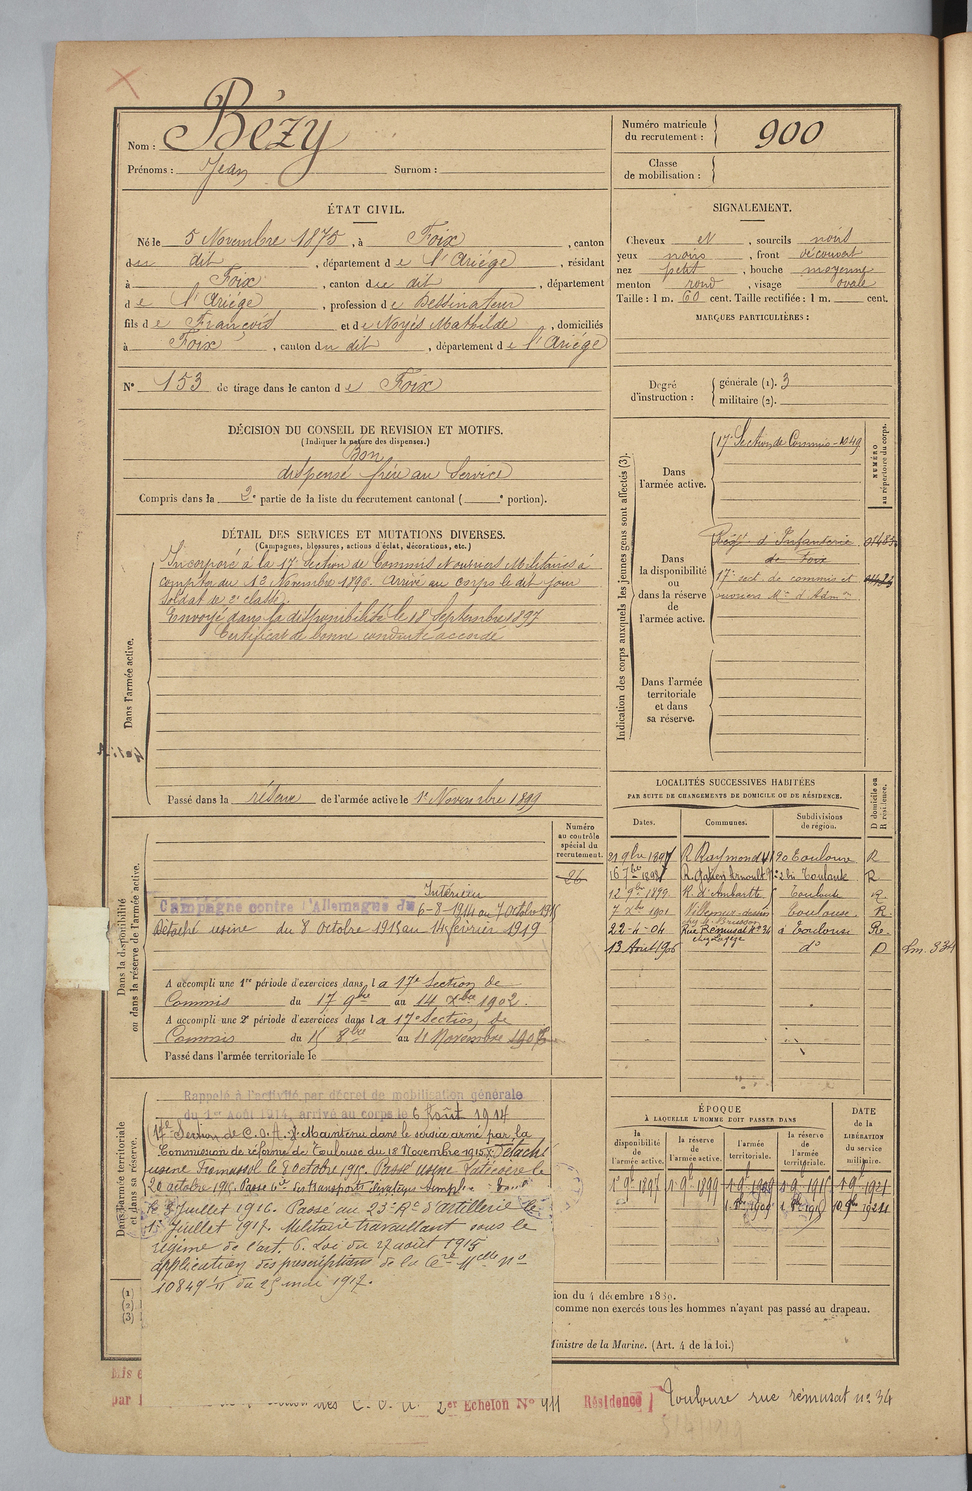 Nom : Bézy
Prénoms : Jean Surnom :
Numéro matricule du recrutement : 900
Classe de mobilisation :
ÉTAT CIVIL.
Né le 5 Novembre 1875, à Foix, canton
du dit, département de l'Ariège, résidant
à Foix, canton du dit, département
de l'Ariège, profession de Dessinateur
fils de François et de Noyés Mathilde, domiciliés
à Foix, canton du dit, département de l'Ariège
N° 153 de tirage dans le canton de Foix
SIGNALEMENT.
Cheveux et, sourcils noirs
yeux noirs, front découvert
nez petit, bouche moyenne
menton rond, visage ovale
Taille : 1 m. 60 cent. Taille rectifiée : 1 m. cent.
MARQUES PARTICULIÈRES :
Degré d'instruction : générale (1). 3
militaire (2).
DÉCISION DU CONSEIL DE REVISION ET MOTIFS.
(Indiquer la nature des dispenses.)
Bon
dispensé frère au Service
Compris dans la 2e partie de la liste du recrutement cantonal ( e portion).
DÉTAIL DES SERVICES ET MUTATIONS DIVERSES.
(Campagnes, blessures, actions d'éclat, décorations, etc.)
Dans l'armée active.
Incorporé à la 17e Section de Commis et ouvriers Militaires à
compter du 13 Novembre 1896. Arrivé au corps le dit jour
Soldat de 2e classe.
Envoyé dans la disponibilité le 18 Septembre 1897
Certificat de bonne conduite accordé
Passé dans la réserve de l'armée active le 1er Novembre 1899
Indication des corps auxquels les jeunes gens sont affectés (3).
NUMÉRO au répertoire du corps.
Dans l'armée active.
17e Section de Commis - 1049
Dans la disponibilité ou dans la réserve de l'armée active.
Régt d'Infanterie
de Foix
17e sect. de commis et
ouvriers Mres d'Admon
Dans l'armée territoriale et dans sa réserve.
LOCALITÉS SUCCESSIVES HABITÉES
PAR SUITE DE CHANGEMENTS DE DOMICILE OU DE RÉSIDENCE.
Dates. Communes. Subdivisions de région. D domicile ou R résidence.
21 9bre 1897 R. Raymond 4 Toulouse R
16 7bre 1898 R. Gatien Arnoult Toulouse R
12 9bre 1899 R. d'Aubuisson Toulouse R
7 Xbre 1901 Toulouse R.
22-4-04 Rue Rémusat N° 34 à Toulouse Re
13 Août 1906 d° D
Dans la disponibilité ou dans la réserve de l'armée active.
Numéro au contrôle spécial du recrutement.
26
Intérieur
Campagne contre l'Allemagne du 6-8-1914 au 7 Octobre 1915
Détaché usine du 8 Octobre 1915 au 14 février 1919
A accompli une 1re période d'exercices dans la 17e Section de
Commis du 17 9bre au 14 Xbre 1902.
A accompli une 2e période d'exercices dans la 17e Section de
Commis du 15 8bre au 11 Novembre
Passé dans l'armée territoriale le
Dans l'armée territoriale et dans sa réserve.
Rappelé à l'activité par décret de mobilisation générale
du 1er Août 1914, arrivé au corps le 6 Août 1914
17e Section de C.O.A. Maintenu dans le service armé par la
Commission de réforme de Toulouse du 18 Novembre 1915. Détaché
usine le 8 octobre 1915. Passé usine Latécoère le
20 octobre 1915.
le 3 Juillet 1916. Passé au 23e Rt d'Artillerie le
1er Juillet 1917. Militaire travaillant sous le
régime de l'art. 6. Loi du 17 août 1915
application des prescriptions de la Cre Mlle n°
10849 du 25 mai 1917.
ÉPOQUE
À LAQUELLE L'HOMME DOIT PASSER DANS
DATE de la LIBÉRATION du service militaire.
la disponibilité de l'armée active. la réserve de l'armée active. l'armée territoriale. la réserve de l'armée territoriale.
1er 9bre 1897 1er 9bre 1899
(1)
(2)
(3)
ion du 4 décembre 1889.
comme non exercés tous les hommes n'ayant pas passé au drapeau.
Ministre de la Marine. (Art. 4 de la loi.)
C. O. A. 2er Echelon N° 911 Résidence Toulouse rue rémusat n° 34